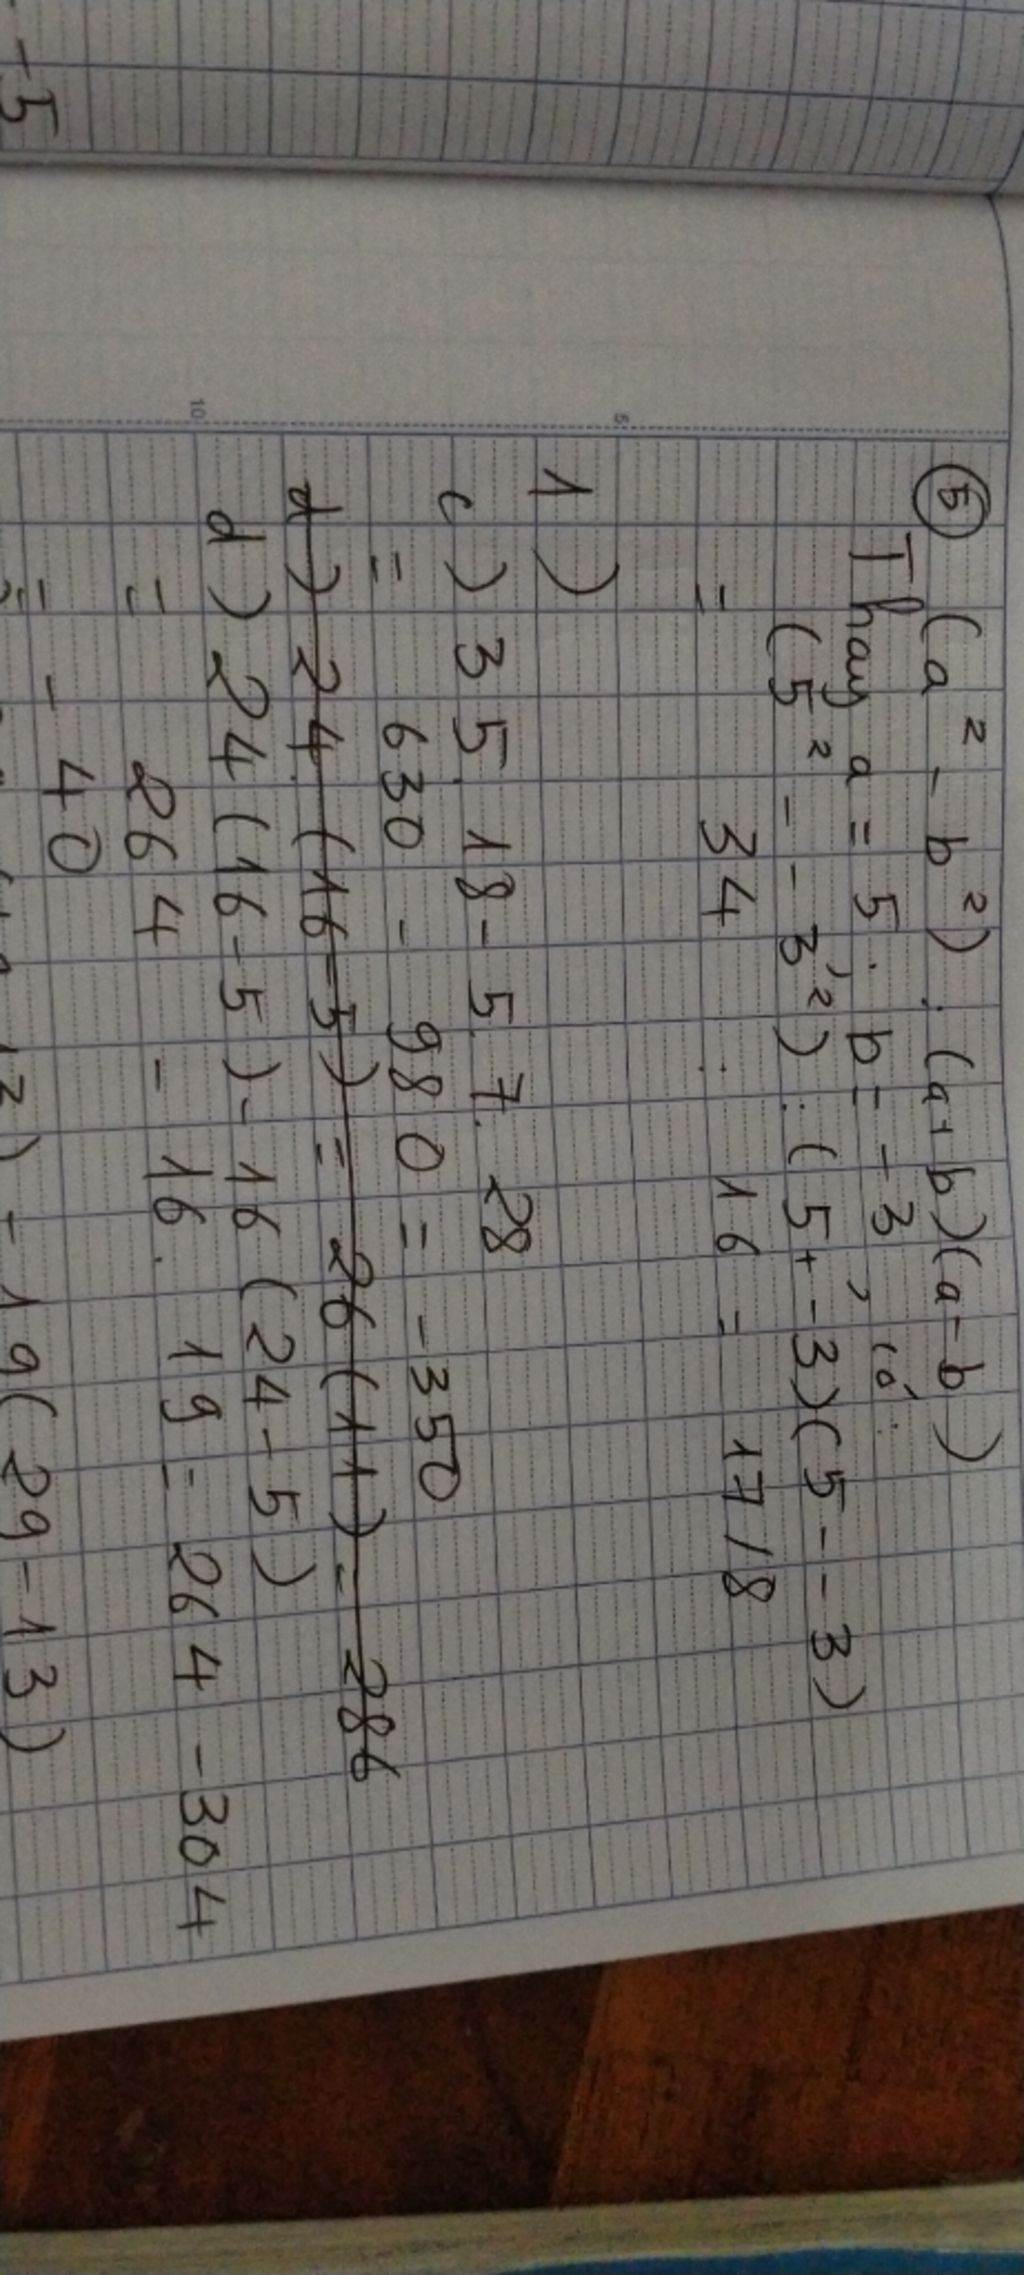 -5
5
10
⑤ (a² - b²) : (a+b)(a-b)
Thay a = 5; b = -3, có:
(5² - -3²) : (5+ -3)(5 - -3)
= 34 : 16 = 17/8
1)
c) 35. 18 - 5. 7. 28
= 630 - 980 = -350
d) 24. (16-5) = 26(11) = 286
d) 24(16-5) - 16(24-5)
= 264 - 16. 19 = 264 - 304
= -40
19(29-13)